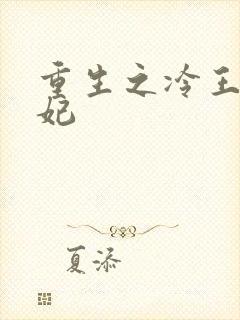 重生之冷王
妃
夏添